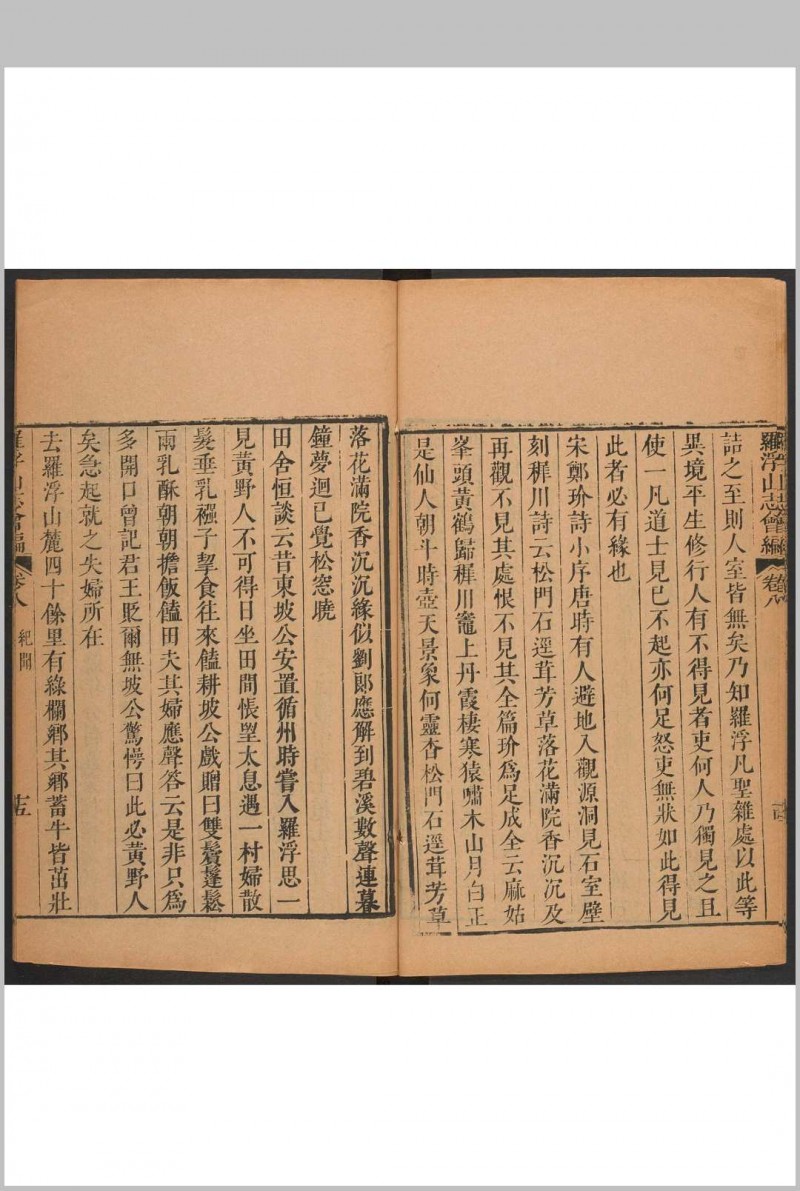 羅浮山志會編 卷八
詰之至則人室皆無矣乃知羅浮凡聖雜處以此等
異境平生修行人有不得見者吏何人乃獨見之且
使一凡道士見已不起亦何足怒吏無狀如此得見
此者必有緣也
宋鄭玠詩小序唐時有人避地入觀源洞見石室壁
刻稚川詩云松門石逕茸芳草落花滿院香沉沉及
再觀不見其處恨不見其全篇玠爲足成全云麻姑
峯頭黃鶴歸稚川竈上丹霞棲寒猿嘯木山月白正
是仙人朝斗時壺天景象何靈杳松門石逕茸芳草
落花滿院香沉沉緣似劉郎應解到碧溪數聲連暮
鐘夢迴已覺松窓曉
田舍恒談云昔東坡公安置循州時嘗入羅浮思一
見黃野人不可得日坐田間悵望太息遇一村婦散
髮垂乳襁子挈食往來饁耕坡公戲贈曰雙鬢蓬鬆
兩乳酥朝朝擔飯饁田夫其婦應聲答云是非只爲
多開口曾記君王貶爾無坡公驚愕曰此必黃野人
矣急起就之失婦所在
去羅浮山麓四十餘里有綠欄鄉其鄉蓄牛皆茁壯
羅浮山志會編 卷八 紀聞 十五